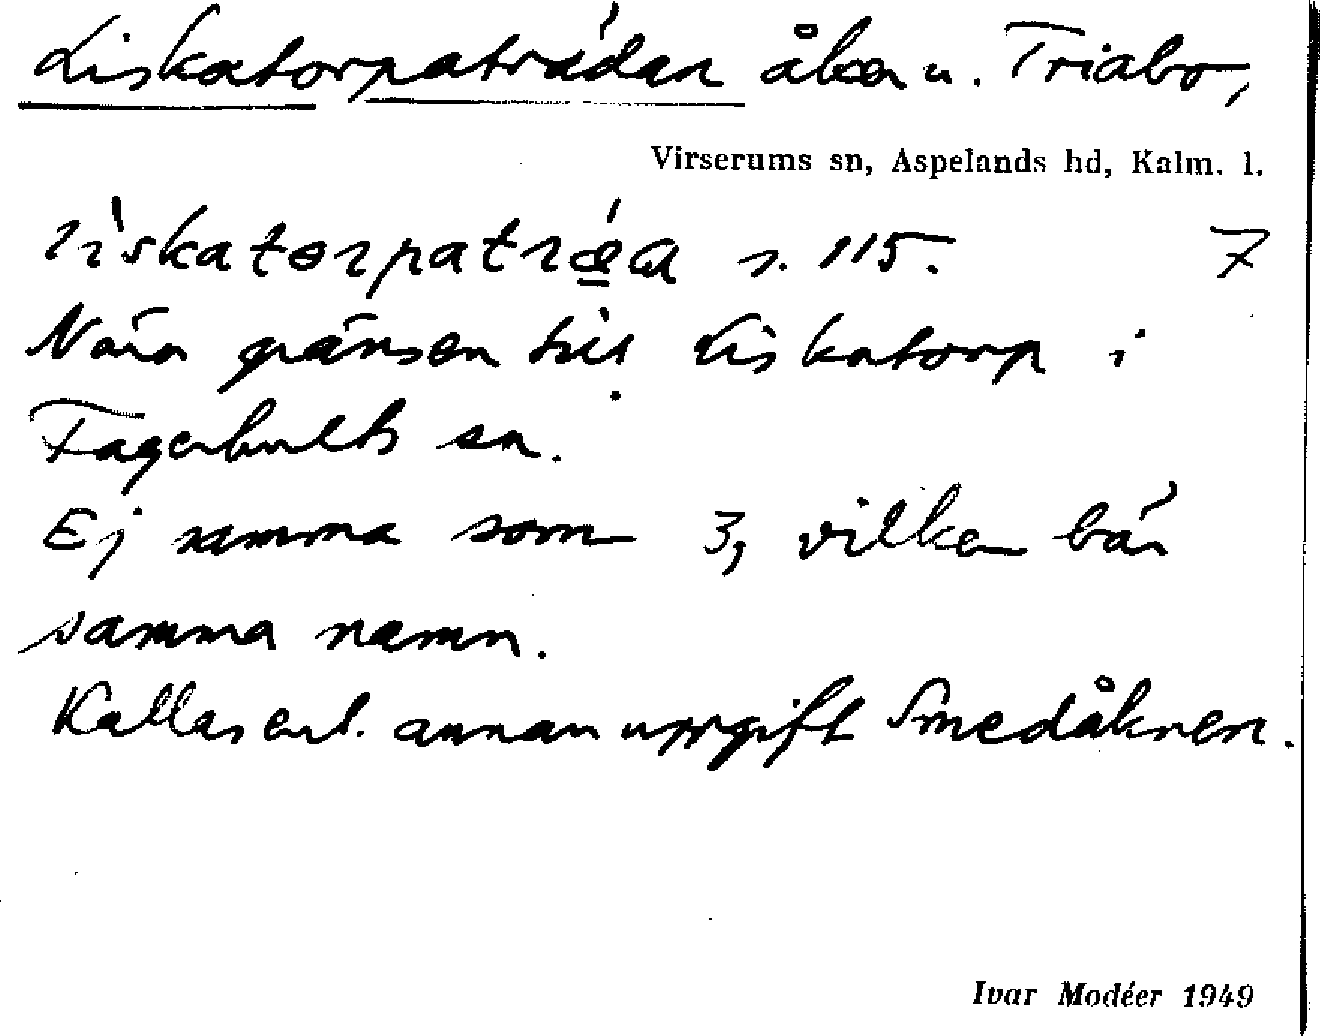 Liskatorpaträdan åker u. Triabo,
Virserums sn, Aspelands hd, Kalm. l.
liskatorpatræ̱a s. 115. 7
Nära gränsen till Liskatorp i
Fagerhults sn.
Ej samma som 3, vilken bär
samma namn.
Kallas enl. annan uppgift Smedåkren.
Ivar Modéer 1949